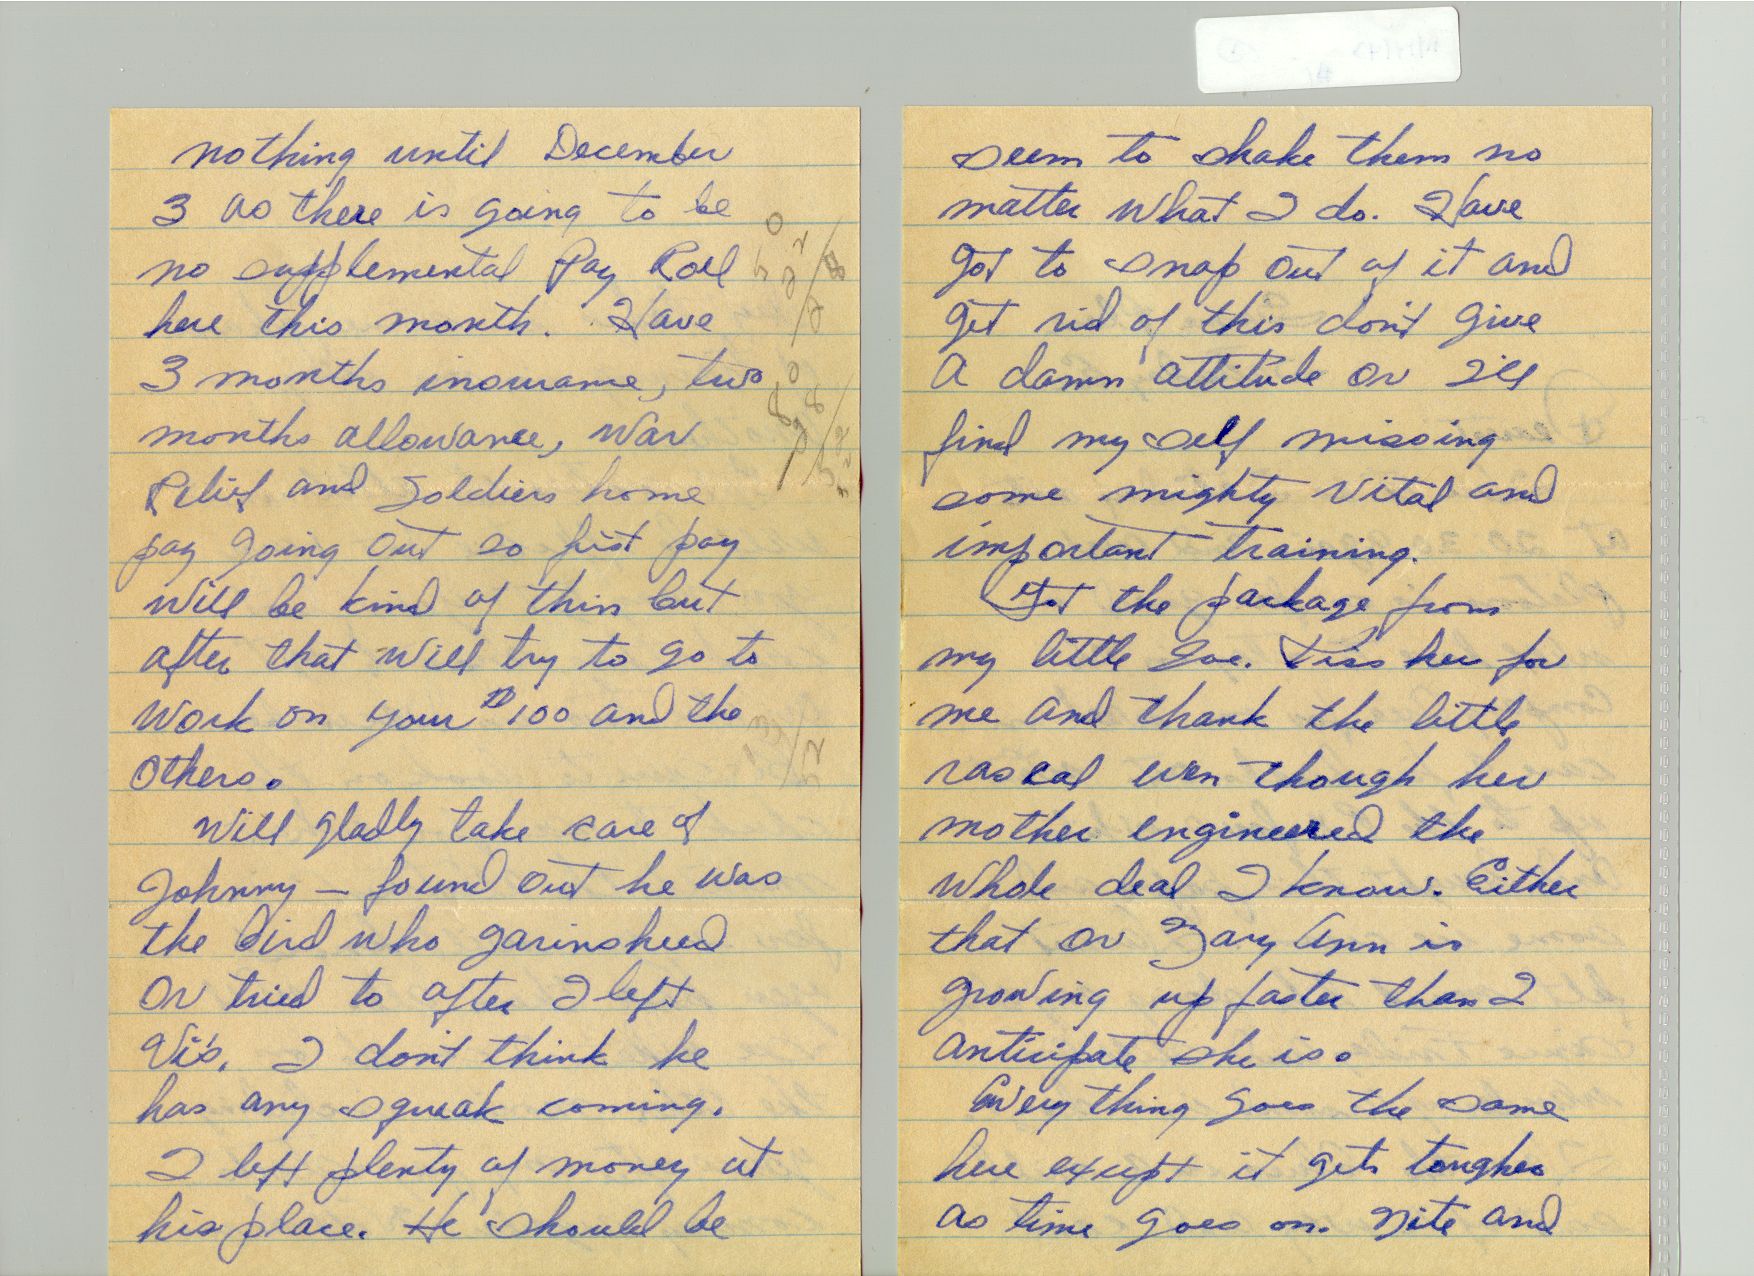 nothing until December
3 as there is going to be
no supplemental Pay Roll
here this month. Have
3 months insurance, two
months allowance, War
Relief and Soldiers home
pay going out so first pay
will be kind of thin but
after that will try to go to
work on your $100 and the
others.
Will gladly take care of
Johnny — found out he was
the bird who garinsheed
or tried to after I left
Vi's. I don't think he
has any squeak coming.
I left plenty of money at
his place. He should be
seem to shake them no
matter what I do. Have
got to snap out of it and
get rid of this don't give
a damn attitude or I'll
find my self missing
some mighty vital and
important training.
Got the package from
my little gal. Kiss her for
me and thank the little
rascal even though her
mother engineered the
whole deal I know. Either
that or Mary Ann is
growing up faster than I
anticipate she is.
Every thing goes the same
here except it gets tougher
as time goes on. Nite and